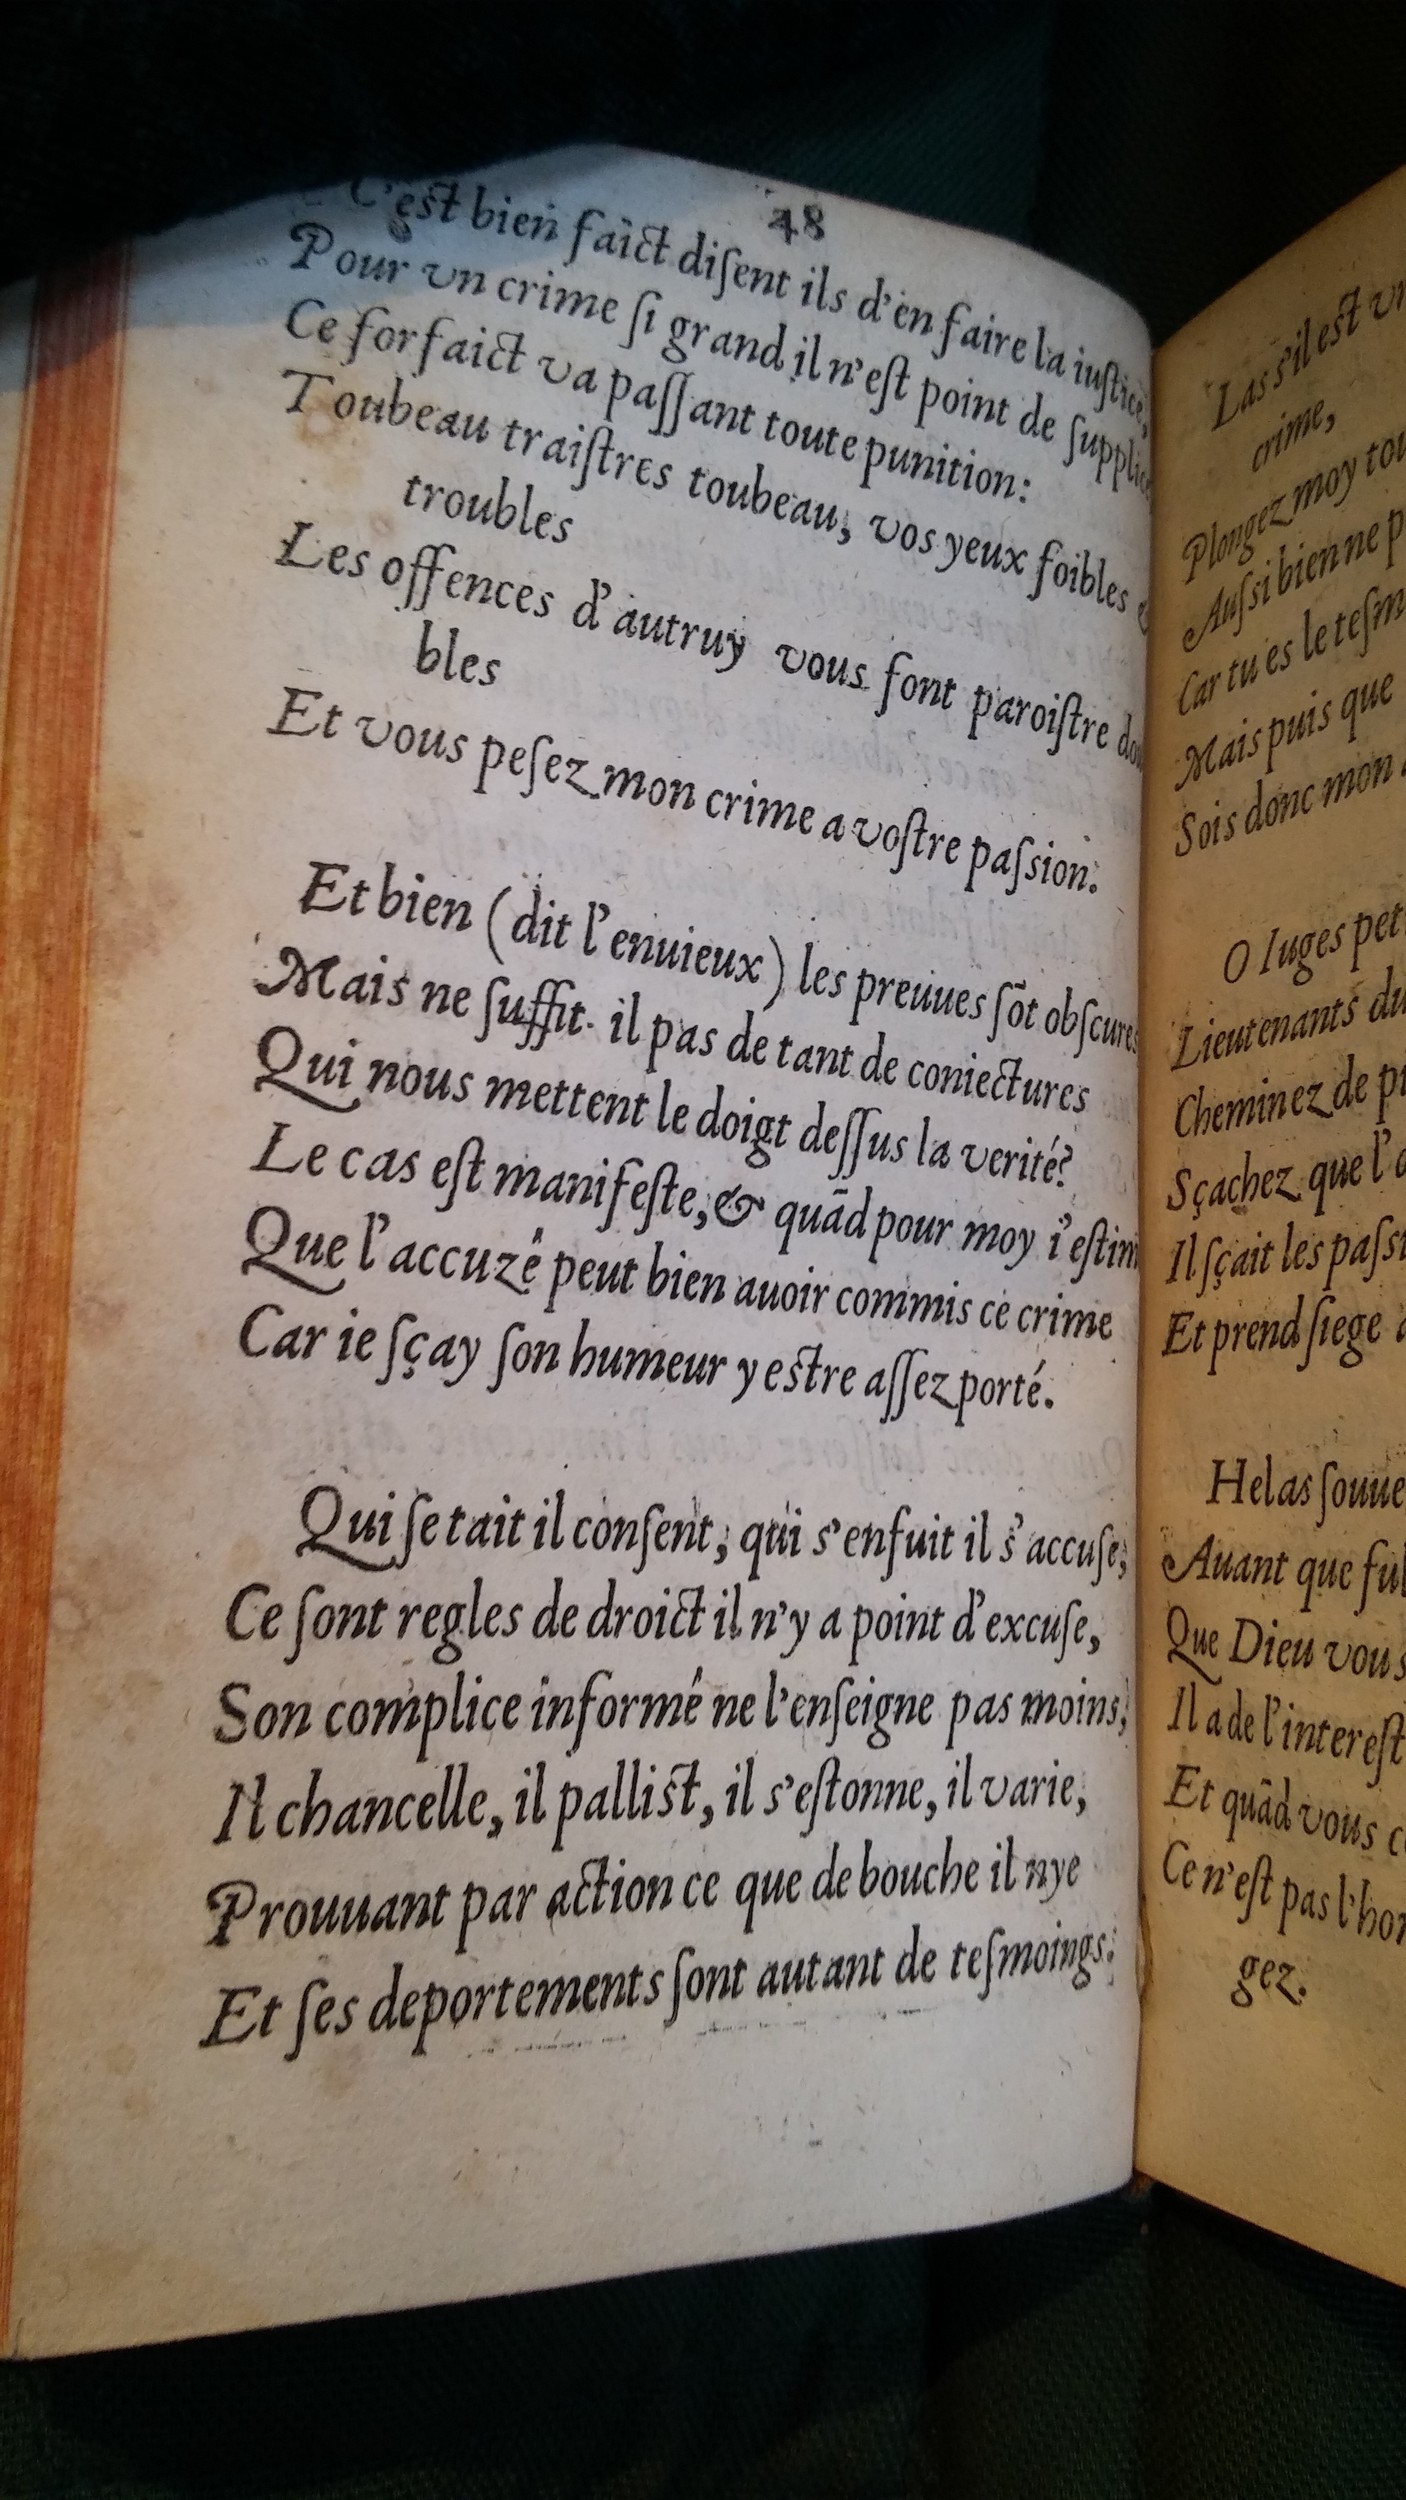 48
C'est bien faict diſent ils d'en faire la iuſtice,
Pour vn crime ſi grand il n'eſt point de
Ce forfaict va paſſant toute punition:
Toubeau traiſtres toubeau, vos yeux foibles
troubles
Les offences d'autruy vous font paroiſtre
bles
Et vous peſez mon crime a voſtre paſsion.
Et bien (dit l'enuieux) les preuues ſõt obſcures
Mais ne ſuffit il pas de tant de coniectures
Qui nous mettent le doigt deſſus la verité?
Le cas eſt manifeſte, & quãd pour moy
Que l'accuzé peut bien auoir commis ce crime
Car ie ſçay ſon humeur y estre aſſez porté.
Qui ſe tait il conſent, qui s'enfuit il s'accuſe,
Ce ſont regles de droict il n'y a point d'excuſe,
Son complice informé ne l'enſeigne pas moins,
Il chancelle, il pallist, il s'eſtonne, il varie,
Prouuant par action ce que de bouche il nye
Et ſes deportements ſont autant de teſmoings.
Las s'il est
crime,
Plongez moy
Auſsi bien ne
Car tu es le
Mais puis que
Sois donc mon
O Iuges
Lieutenants
Cheminez de
Sçachez que
Il ſçait les
Et prend ſiege
Helas
Auant que
Que Dieu vous
Il a de l'intereſt
Et quãd vous
Ce n'eſt pas
gez.